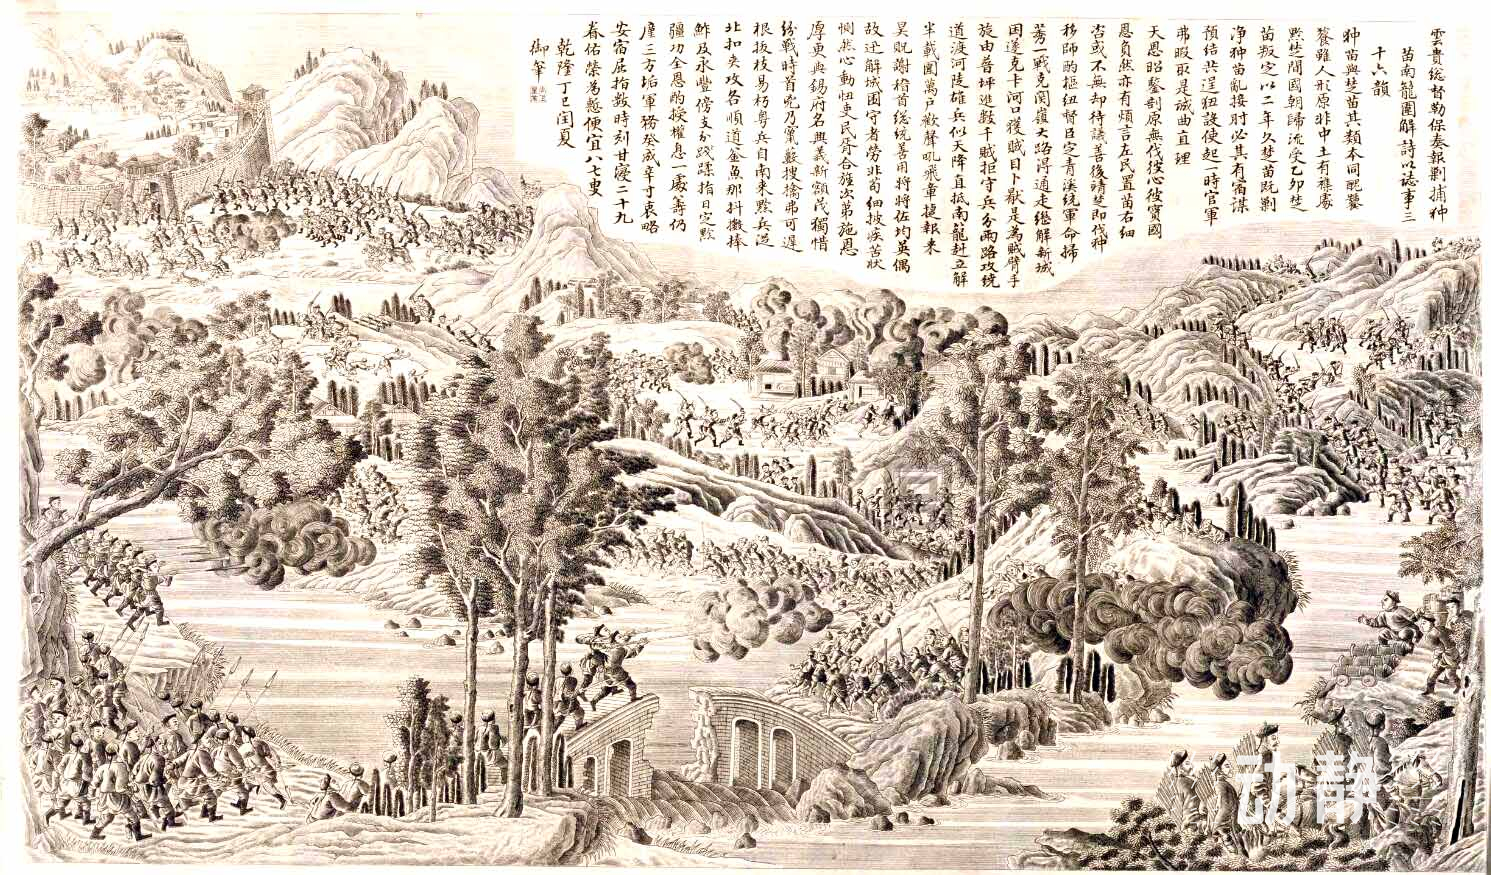 雲貴總督勒保奏報剿捕狆
苗南籠圍解詩以誌事三
十六韻
狆苗與楚苗其類本同䣛饕
餮雖人形原非中土有雜處
黔楚間國朝歸流受乙卯楚
苗叛定以二年久楚苗既剿
淨狆苗亂接肘必其有宿謀
預結共逞狃設使起一時官軍
弗暇取是誠曲直理
天恩昭鑒剖原無伐彼心彼實國
恩負然亦有煩言左民置苗右細
咨或不無却待議善後靖楚即伐狆
移師酌樞紐督臣定青溪統軍命掃
莠一戰克関嶺大路得通走繼解新城
困遂克卡河口獲賊目卜猷是為賊臂手
旋由普坪進數千賊拒守兵分兩路攻統
道渡河陡確兵似天降直抵南籠赴立解
半載圍萬戶歡聲吼飛章捷報来
昊貺謝稽首總統善用將將佐均英偶
故迅解城圍守者勞非茍細披疾苦狀
惻然心動忸吏民胥合旌次苐施恩
厚更與錫府名興義新額茂獨惜
紛戰時首兇乃竄藪搜擒弗可遲
根拔枝易朽粵兵自南来黔兵
北扣夾攻各順道釜魚那抖擻捧
鮓及永豐傍支分踐蹂指日定黔
疆功全恩酌授權息一處籌仍
廑三方垢軍務癸咸辛寸衷略
安宿屈指數時刻甘霪二十九
眷佑榮為懸便宜八七更
乾隆丁巳閏夏
御筆
动静